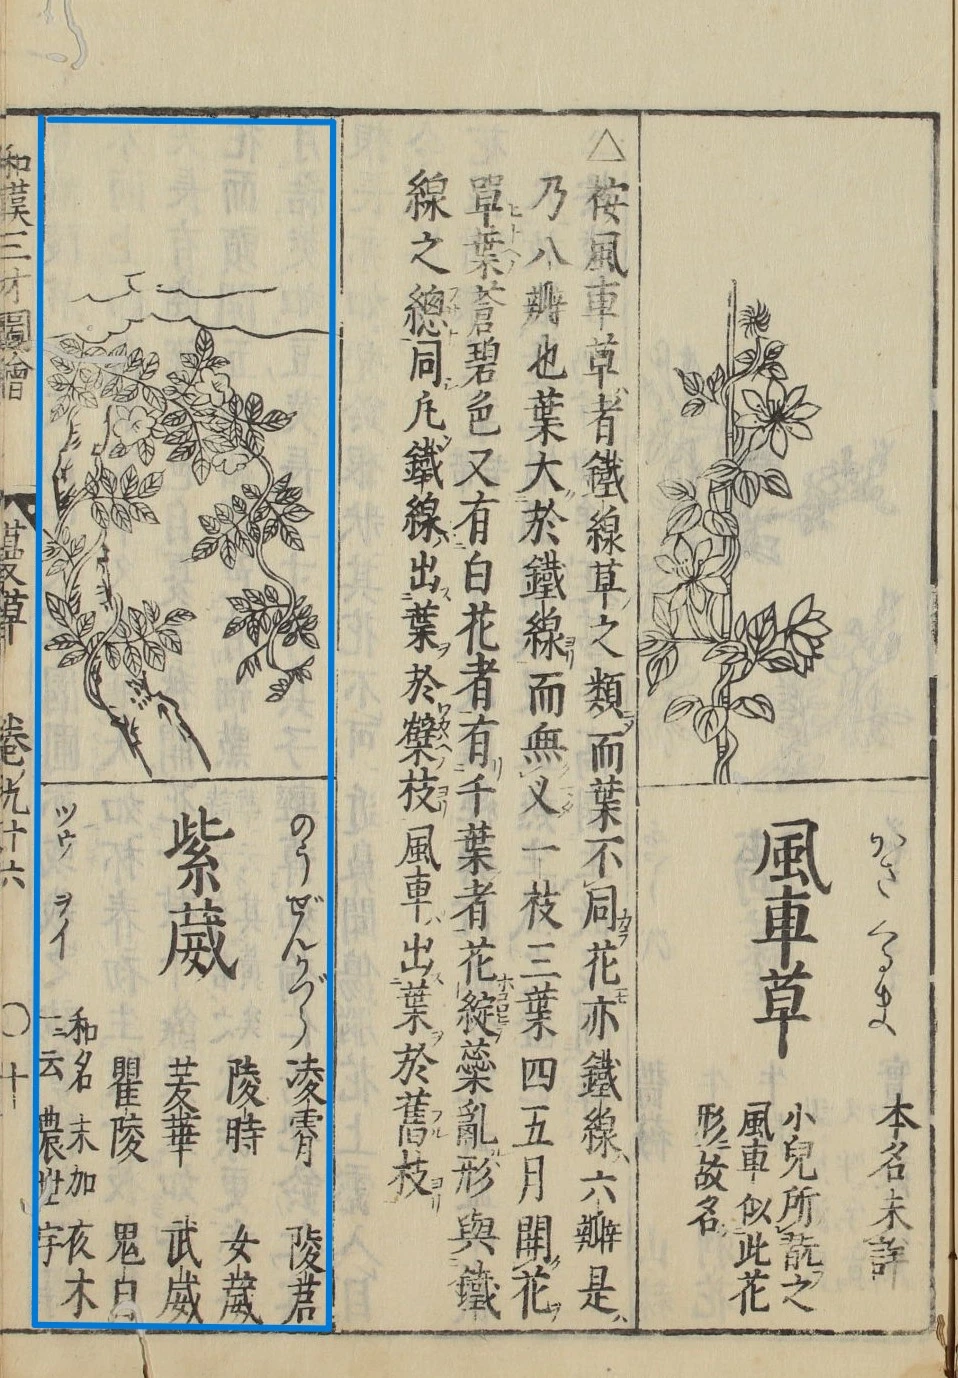 かざぐるま
風車草
本名未詳
小兒所翫之
風車似此花
形故名
△按風車草者鐵線草之類而葉不同花亦鐵線六瓣是
乃八瓣也葉大於鐵線而無叉一枝三葉四五月開花
單葉蒼碧色又有白花者有千葉者花綻蘂亂形與鐵
線之總同凡鐵線出葉於櫱枝風車出葉於舊枝
のうぜんかづら
紫葳
ツウ ヲイ
凌霄 陵苕
陵時 女葳
茇華 武葳
瞿陵 鬼目
和名 末加夜木
一云 農世宇
和漢三才圖會 蔓草 卷ノ九十六 〇十